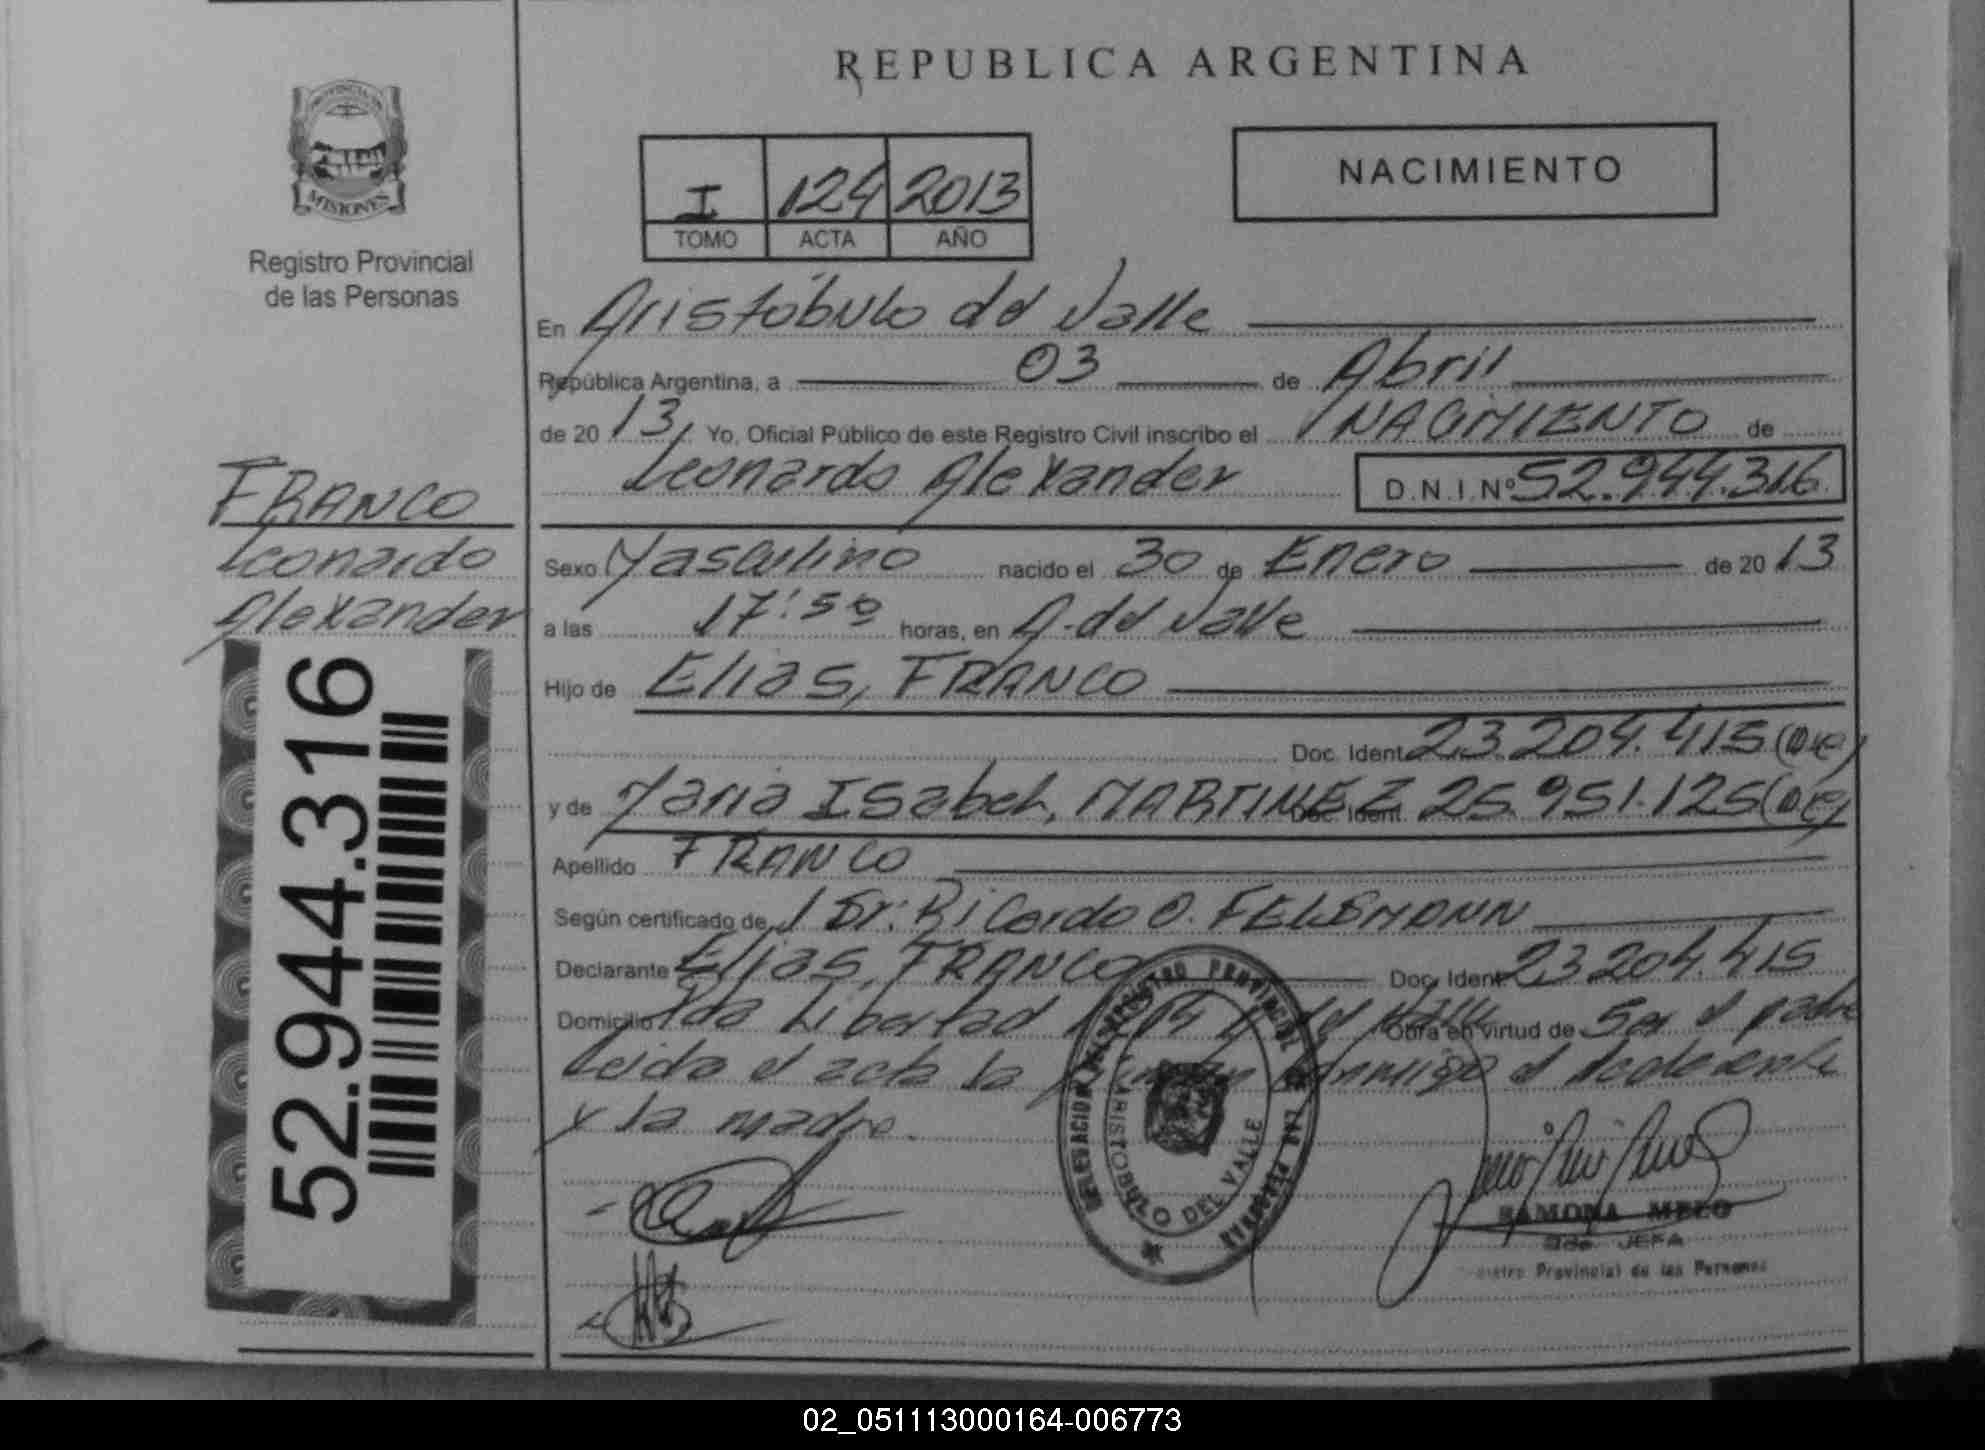 REPUBLICA ARGENTINA
PROVINCIA DE
MISIONES
Registro Provincial
de las Personas
I 124 2013
TOMO ACTA AÑO
NACIMIENTO
En Aristóbulo del Valle
República Argentina, a 03 de Abril
de 2013, Yo, Oficial Público de este Registro Civil inscribo el NACIMIENTO de
Leonardo Alexander D.N.I.Nº 52.944.316
FRANCO
Leonardo
Alexander
52.944.316
Sexo Masculino nacido el 30 de Enero de 2013
a las 17:50 horas, en A. del Valle
Hijo de Elias, FRANCO
Doc. Ident. 23.204.415 (D.E)
y de Maria Isabel, MARTINEZ Doc. Ident. 25.951.125 (D.E)
Apellido FRANCO
Según certificado de Dr. Ricardo O.
Declarante Elias, FRANCO Doc. Ident. 23.204.415
Domicilio Libertad del Valle Obra en virtud de Ser el padre
Leida el acta la conmigo el declarante
y la madre.
REGISTRO PROVINCIAL DE LAS PERSONAS
DELEGACION
ARISTOBULO DEL VALLE
RAMONA MELO
JEFA
Registro Provincial de las Personas
02_051113000164-006773